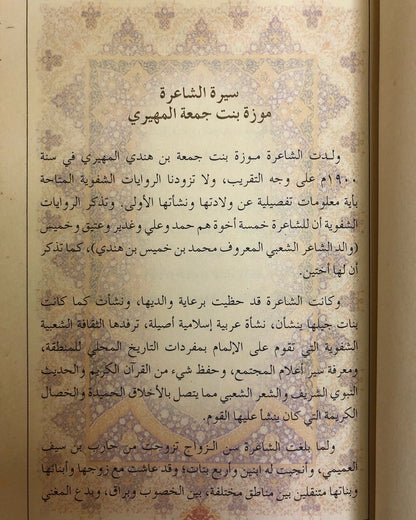 سيرة الشاعرة
موزة بنت جمعة المهيري
ولدت الشاعرة موزة بنت جمعة بن هندي المهيري في سنة
١٩٠٠م على وجه التقريب، ولا تزودنا الروايات الشفوية المتاحة
بأية معلومات تفصيلية عن ولادتها ونشأتها الأولى. وتذكر الروايات
الشفوية أن للشاعرة خمسة أخوة هم حمد وعلي وغدير وعتيق وخميس
(والد الشاعر الشعبي المعروف محمد بن خميس بن هندي)، كما تذكر
أن لها أختين.
وكانت الشاعرة قد حظيت برعاية والديها، ونشأت كما كانت
بنات جيلها ينشأن، نشأة عربية إسلامية أصيلة، ترفدها الثقافة الشعبية
الشفوية التي تقوم على الإلمام بمفردات التاريخ المحلي للمنطقة،
ومعرفة سير أعلام المجتمع، وحفظ شيء من القرآن الكريم والحديث
النبوي الشريف والشعر الشعبي مما يتصل بالأخلاق الحميدة والخصال
الكريمة التي كان ينشأ عليها القوم.
ولما بلغت الشاعرة سن الزواج تزوجت من حارب بن سيف
العميمي، وأنجبت له ابنين وأربع بنات؛ وقد عاشت مع زوجها وأبنائها
وبناتها متنقلين بين مناطق مختلفة، بين الخصوب وبراق، وبدع المغني